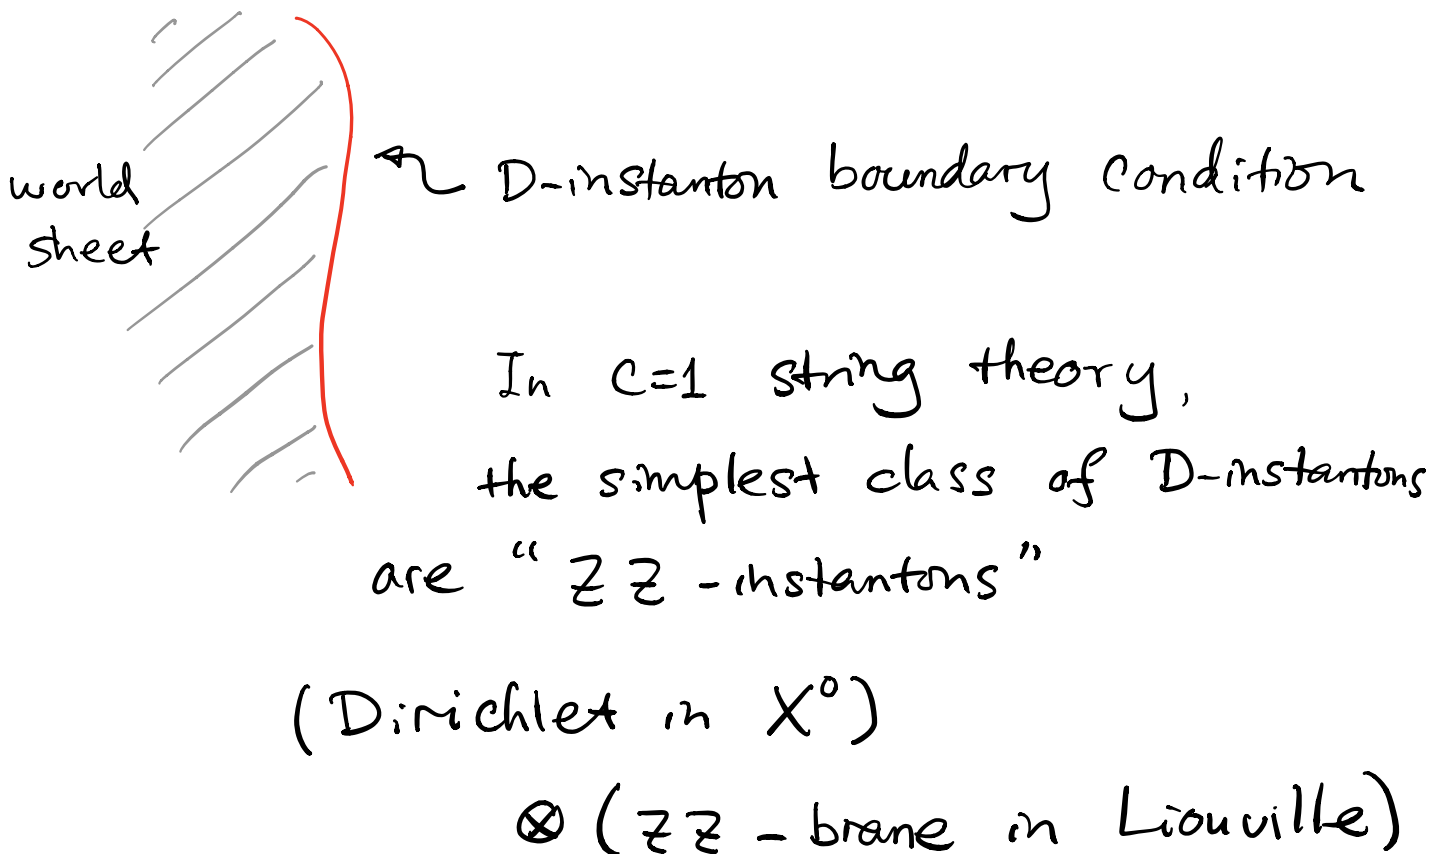 world
sheet
D-instanton boundary condition
In C=1 string theory,
the simplest class of D-instantons
are “ZZ-instantons”
(Dirichlet in X⁰)
⊗ (ZZ-brane in Liouville)